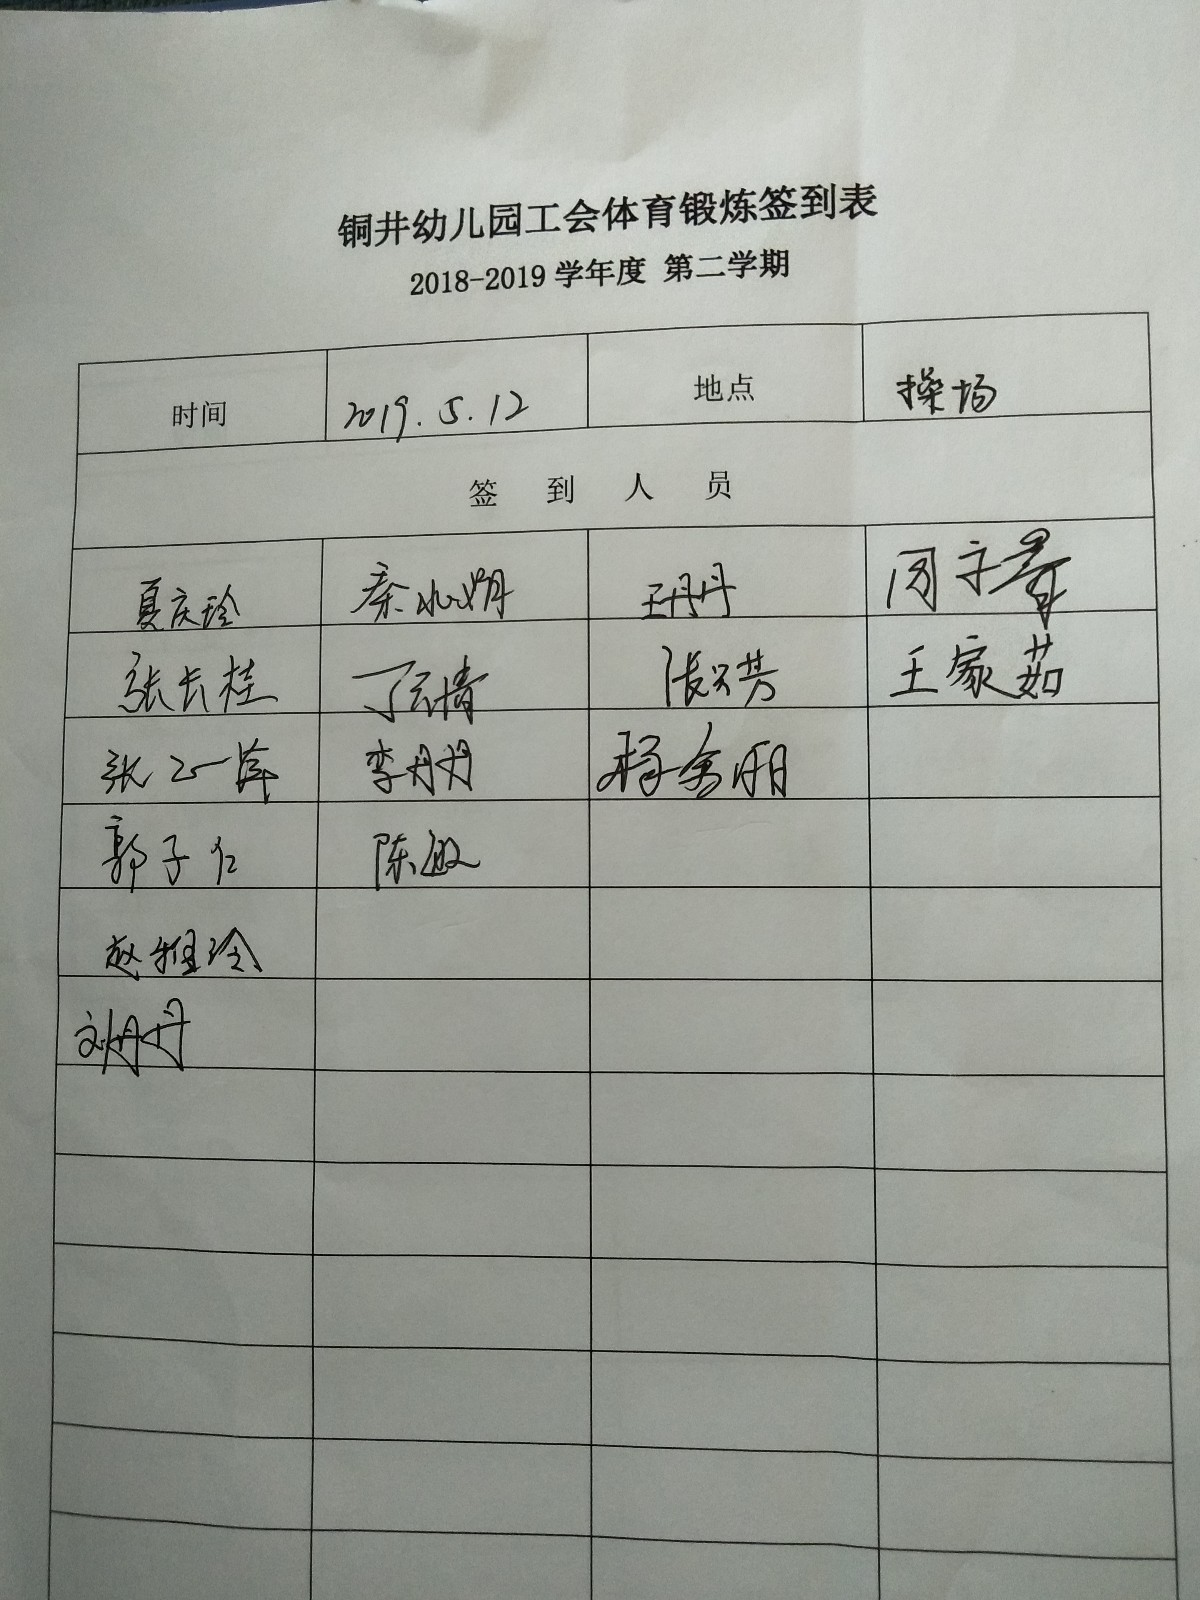 铜井幼儿园工会体育锻炼签到表
2018-2019 学年度 第二学期
时间 2019.5.12 地点 操场
签 到 人 员
夏庆玲 秦 王丹丹 周宇
张长桂 丁云倩 张兴芳 王家茹
张 李丹丹 杨金丽
郭子仁 陈敏
赵雅玲
刘丹丹